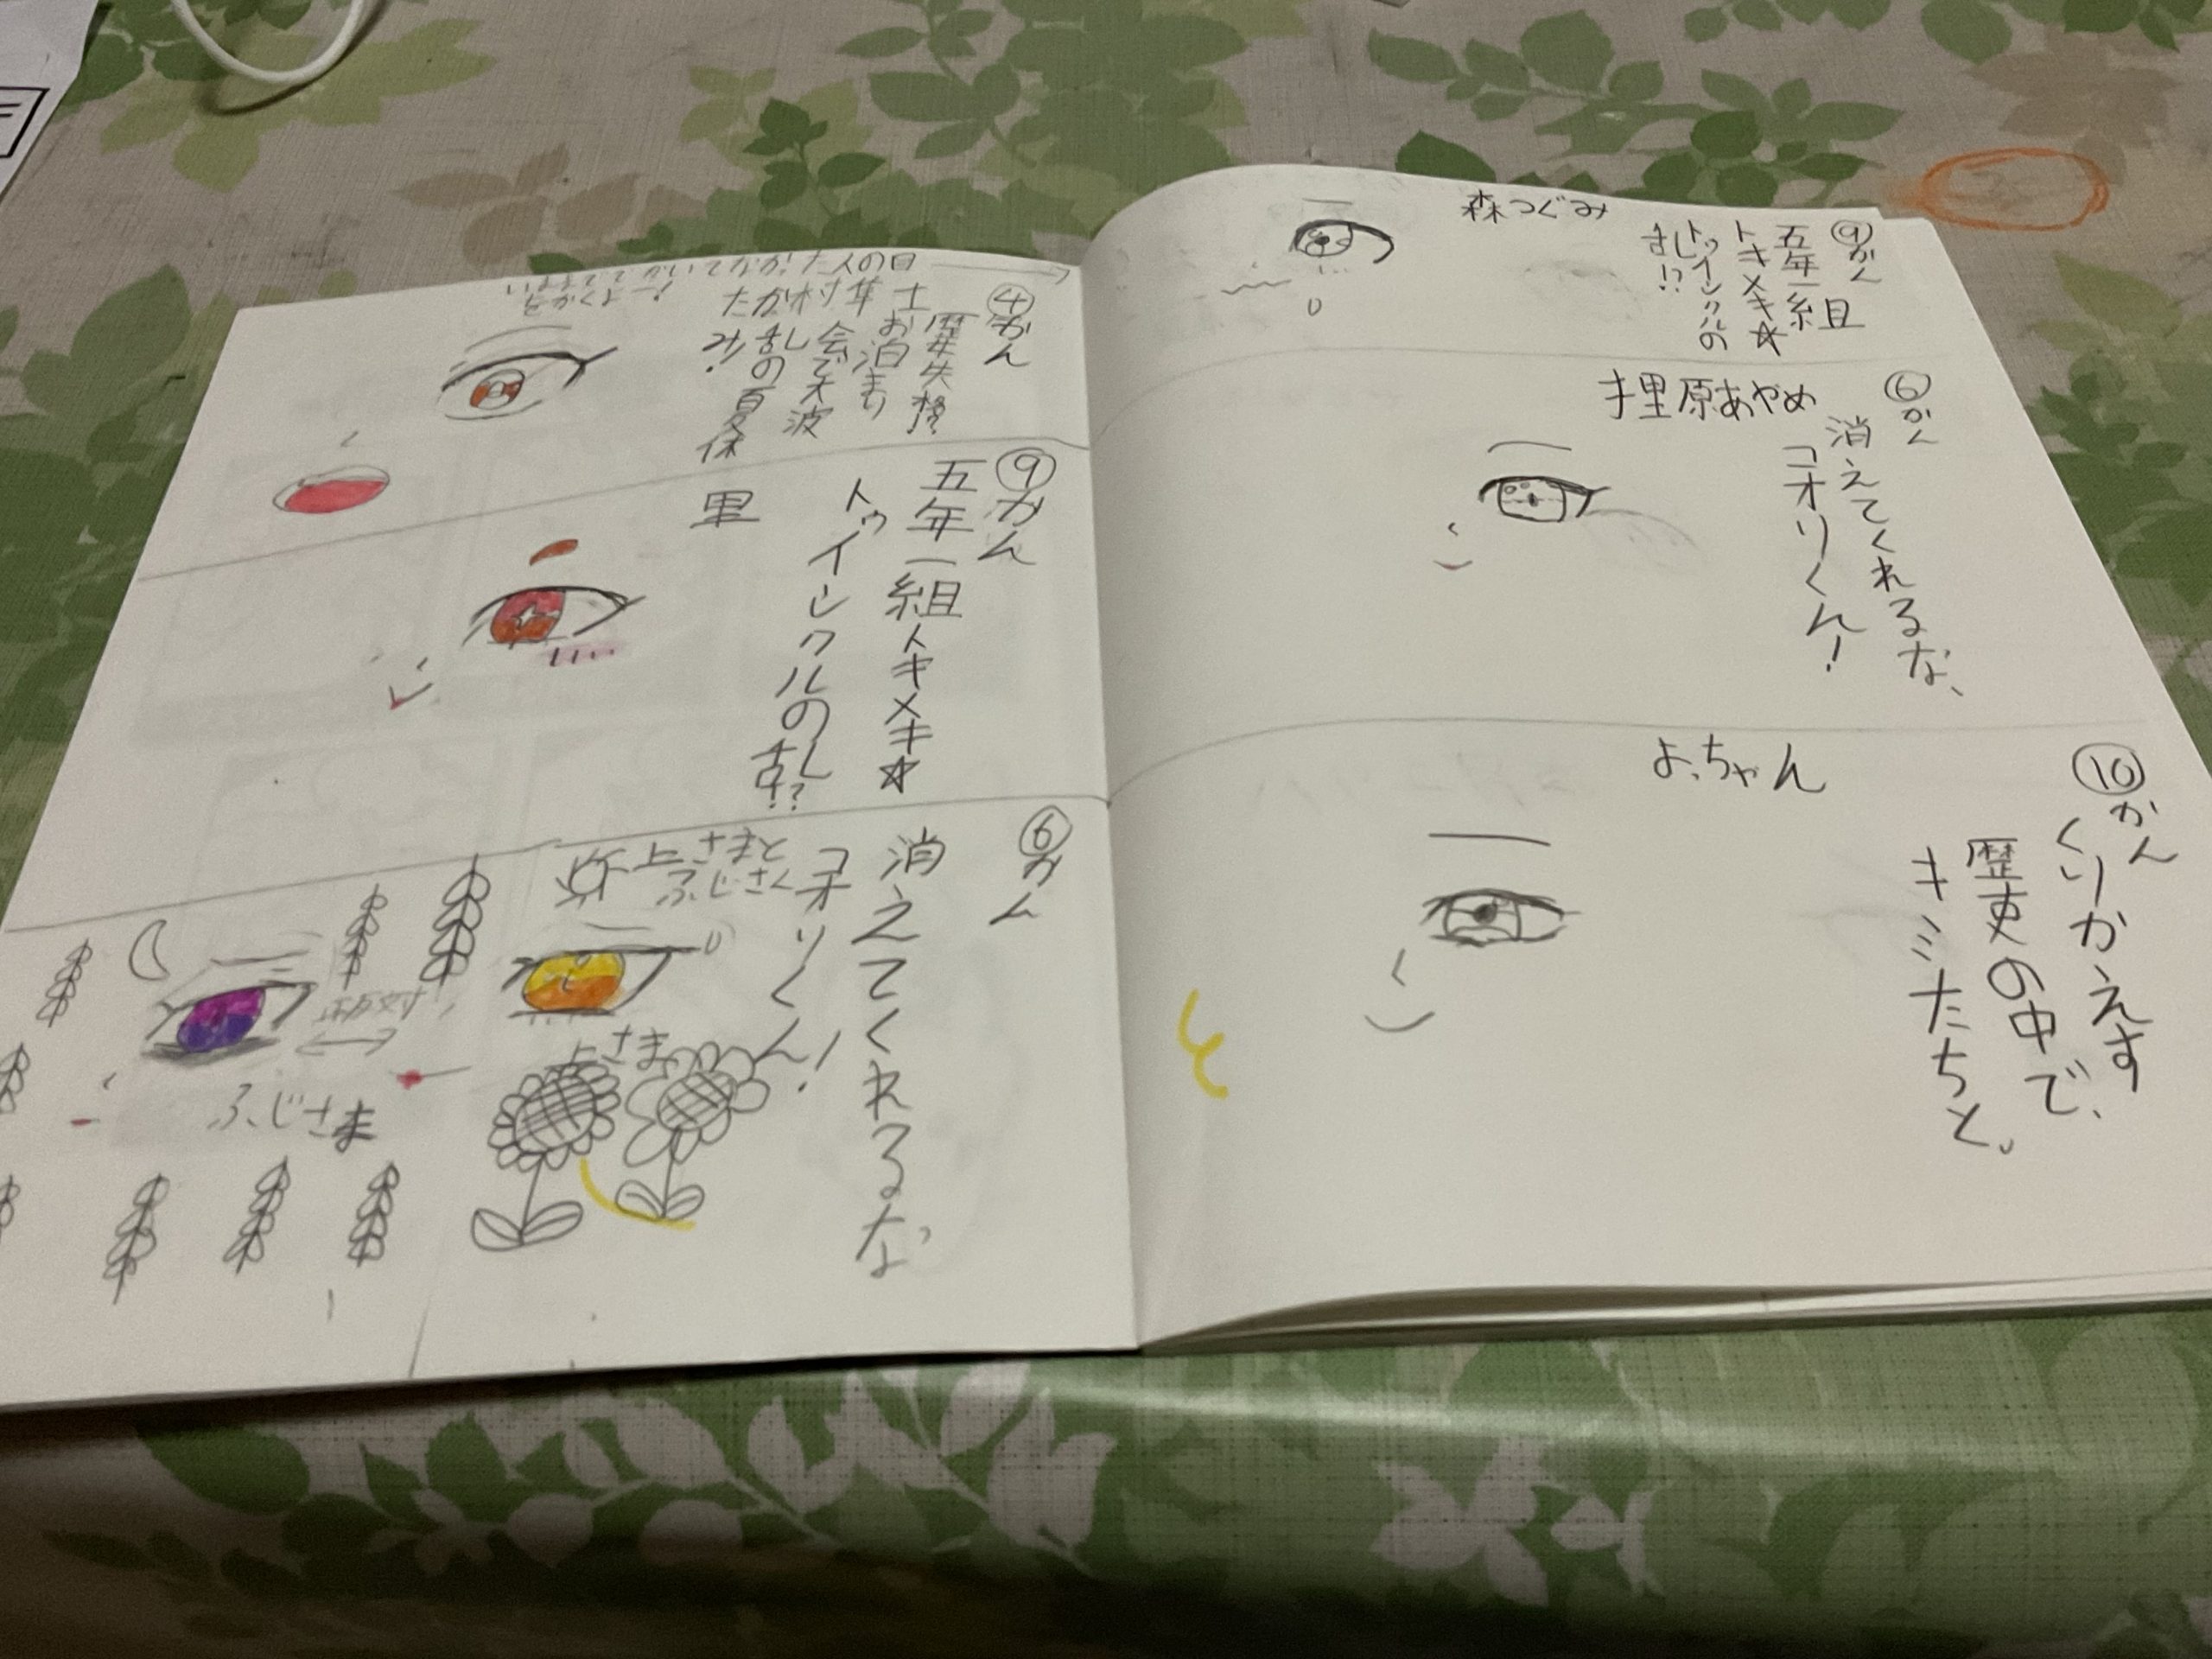 ⑨かん
五年一組
トキメキ☆
トゥインクルの
乱!?
森つぐみ
⑥かん
消えてくれるな、
コオリくん!
原あやめ
⑩かん
くりかえす
歴史の中で、
キミたちと。
よっちゃん
④かん
歴史失格
お泊まり
会で大波
乱の夏休
み!
⑨かん
五年一組トキメキ☆
トゥインクルの乱!?
里
⑥かん
消えてくれるな
コオリくん!
上さまと
ふじさく
上さま
ふじさま